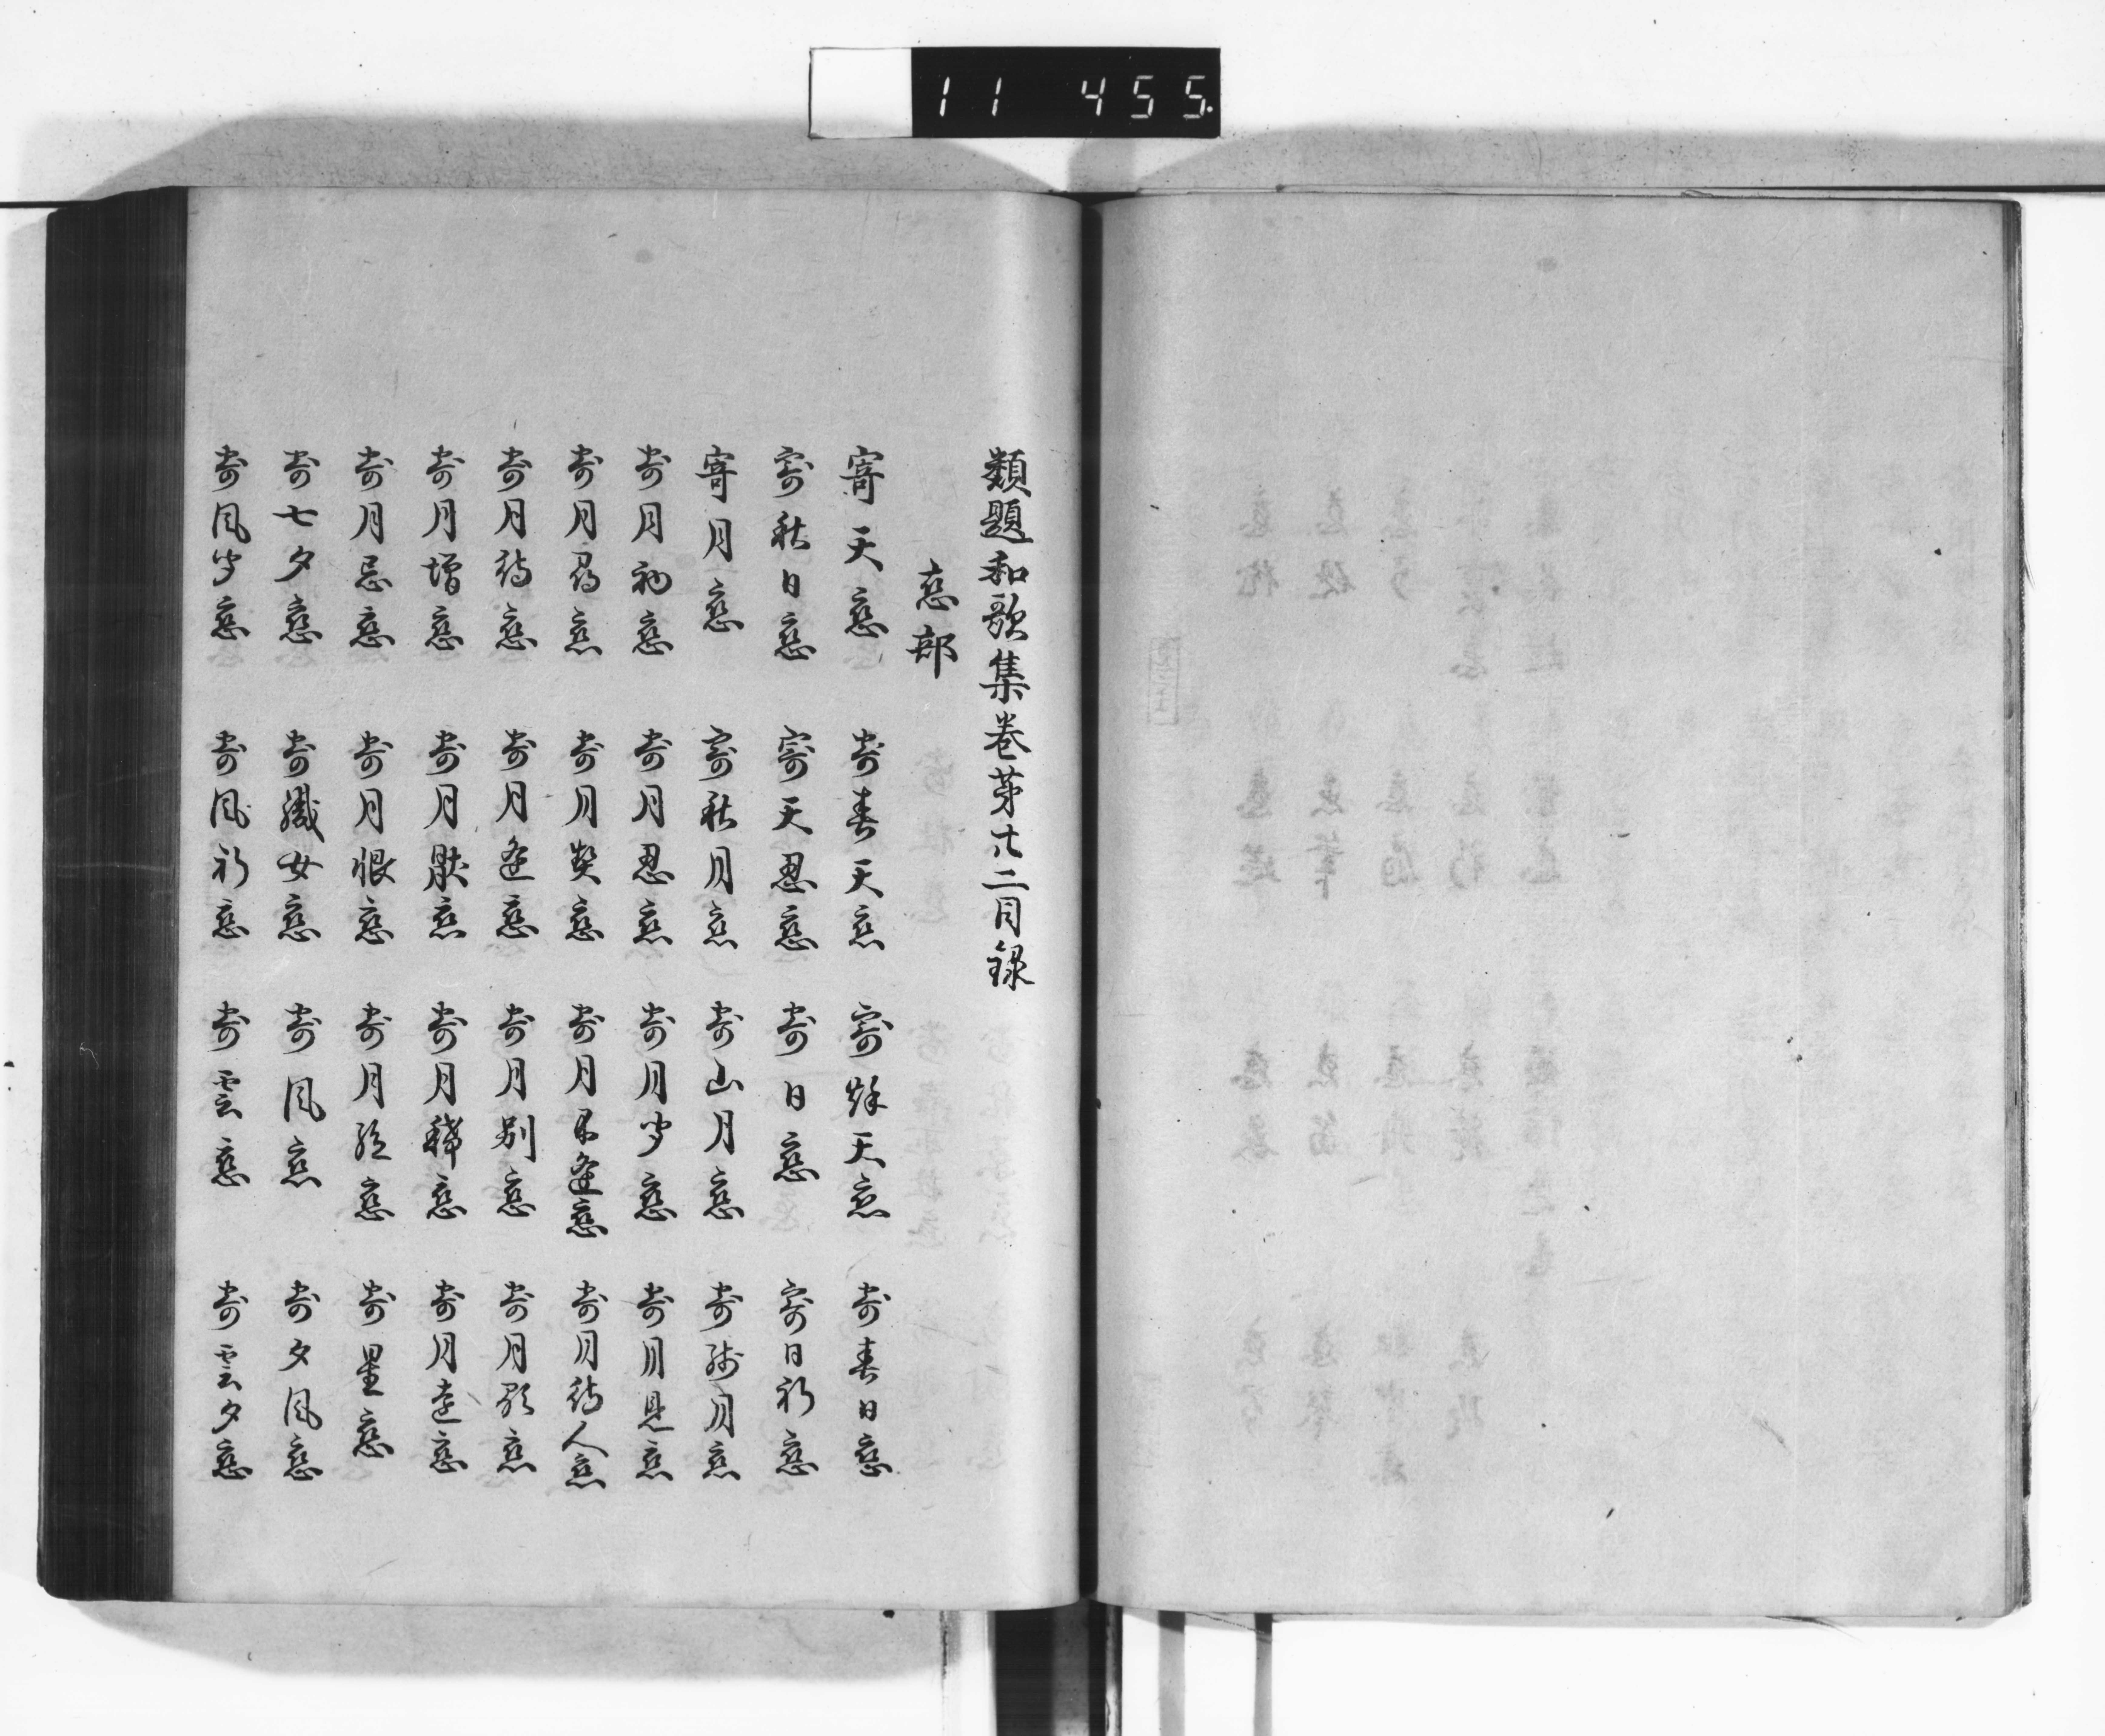 11 455.
類題和歌集巻第廿二目録
恋部
寄天恋 寄春天恋 寄秋天恋 寄春日恋
寄秋日恋 寄天忍恋 寄日恋 寄日祈恋
寄月恋 寄秋月恋 寄山月恋 寄残月恋
寄月初恋 寄月忍恋 寄月聞恋 寄月見恋
寄月尋恋 寄月契恋 寄月不逢恋 寄月待人恋
寄月待恋 寄月逢恋 寄月別恋 寄月顕恋
寄月増恋 寄月厭恋 寄月稀恋 寄月遠恋
寄月忘恋 寄月恨恋 寄月絶恋 寄星恋
寄七夕恋 寄織女恋 寄風恋 寄夕風恋
寄風聞恋 寄風祈恋 寄雲恋 寄雲夕恋